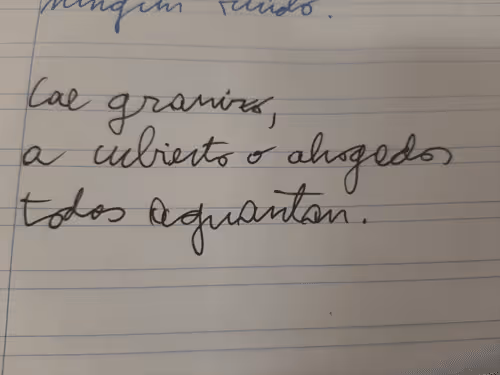 ningún ruido.
Cae granizo,
a cubierto o ahogados
todos aguantan.